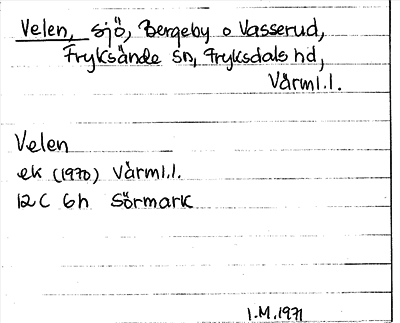 Velen, sjö, Bergeby o Vasserud,
Fryksände sn, Fryksdals hd,
Värml.l.
Velen
ek (1970) Värml.l.
12C 6h Sörmark
I.M.1971